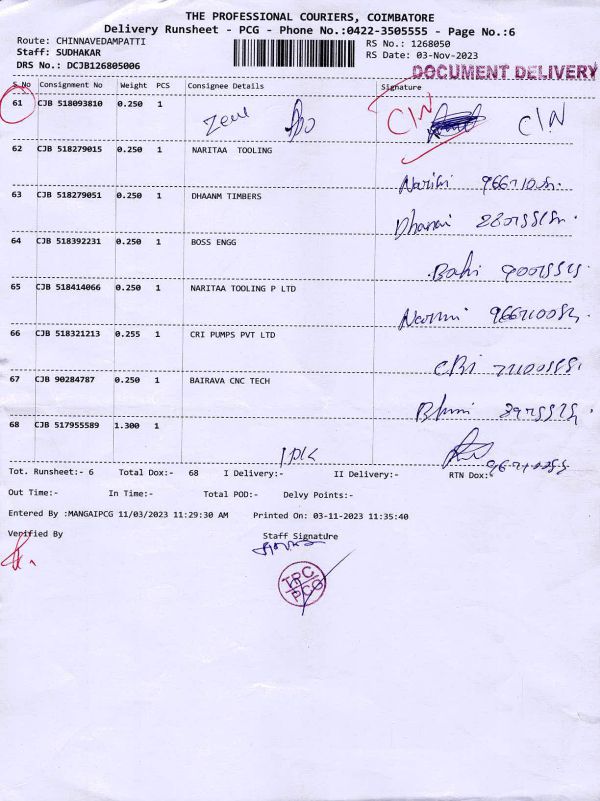 THE PROFESSIONAL COURIERS, COIMBATORE
Delivery Runsheet - PCG - Phone No.:0422-3505555 - Page No.:6
Route: CHINNAVEDAMPATTI RS No.: 1268050
Staff: SUDHAKAR RS Date: 03-Nov-2023
DRS No.: DCJB126805006
DOCUMENT DELIVERY
S No Consignment No Weight PCS Consignee Details Signature
61 CJB 518093810 0.250 1
C/N C/N
62 CJB 518279015 0.250 1 NARITAA TOOLING
63 CJB 518279051 0.250 1 DHAANM TIMBERS
64 CJB 518392231 0.250 1 BOSS ENGG
65 CJB 518414066 0.250 1 NARITAA TOOLING P LTD
66 CJB 518321213 0.255 1 CRI PUMPS PVT LTD
67 CJB 90284787 0.250 1 BAIRAVA CNC TECH
68 CJB 517955589 1.300 1
Tot. Runsheet:- 6 Total Dox:- 68 I Delivery:- II Delivery:- RTN Dox:-
Out Time:- In Time:- Total POD:- Delvy Points:-
Entered By :MANGAIPCG 11/03/2023 11:29:30 AM Printed On: 03-11-2023 11:35:40
Verified By Staff Signature
TPC
PCG